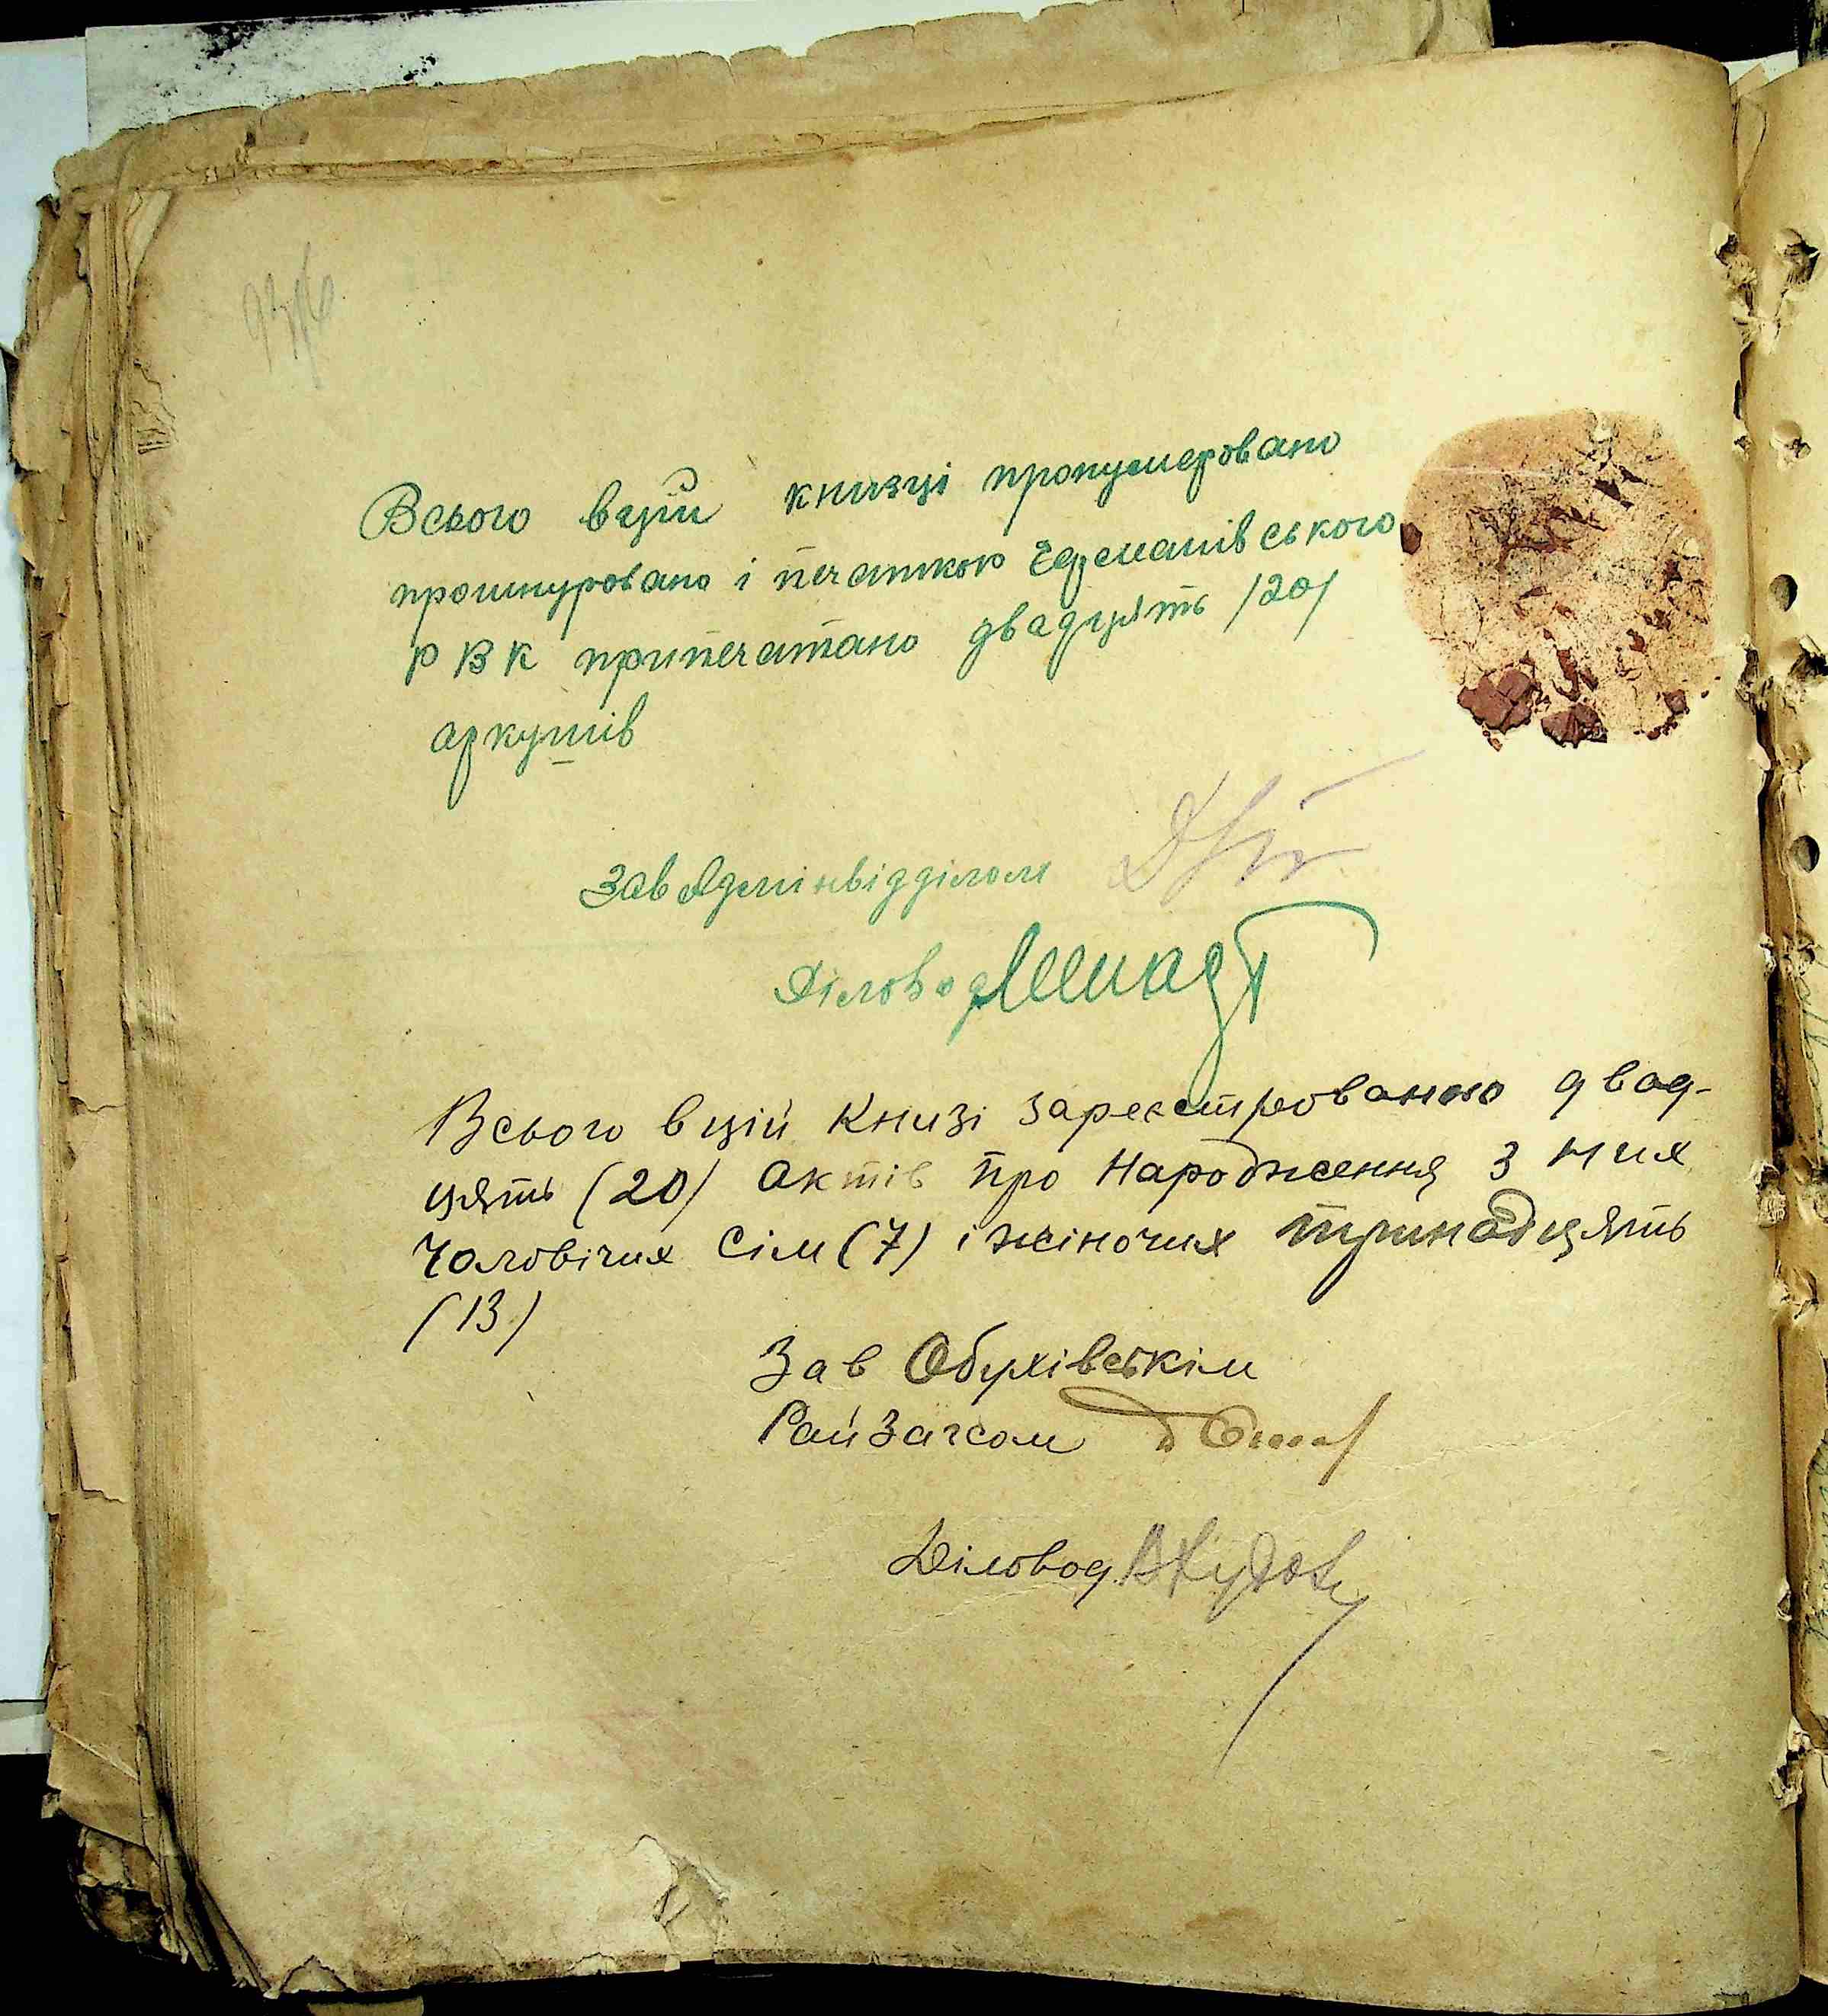 Всього вцій книзці пронумеровано
прошнуровано і печаткою Германівського
РВК припечатано двадцять /20/
аркушів
Зав Адмінвідділом
Діловод
Всього вцій книзі зареєстрованно двад-
цять (20) актів про народження з них
чоловічих сім (7) і жіночих тринадцять
(13)
Зав Обухівськім
РайЗагсом
Діловод